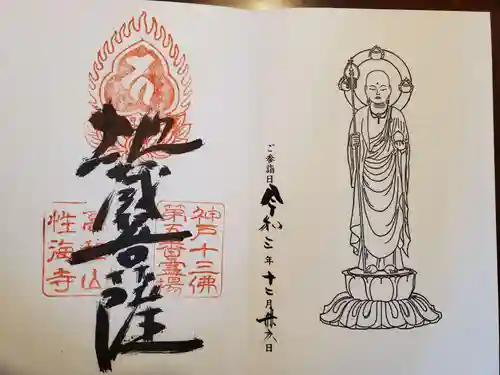 ご参詣日 令和三年十二月廿六日
神戸十三佛
第五番霊場
地蔵菩薩
高和山
性海寺